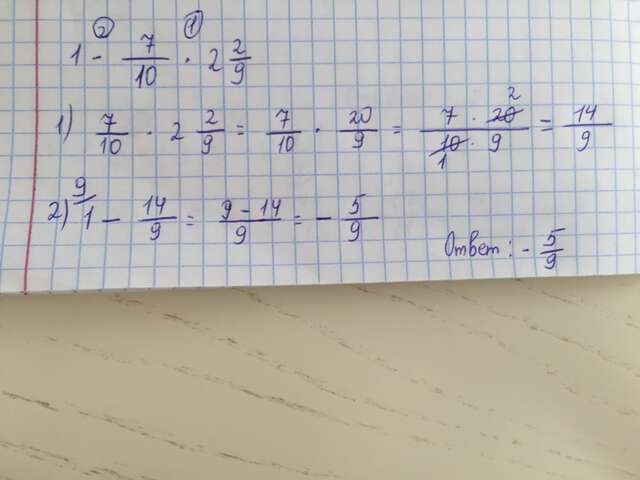 ② ①
1 - 7/10 · 2 2/9
1) 7/10 · 2 2/9 = 7/10 · 20/9 = 7 · 20 2/10 1 · 9 = 14/9
2) 9/ 1 - 14/9 = 9 - 14/9 = - 5/9
Ответ: - 5/9